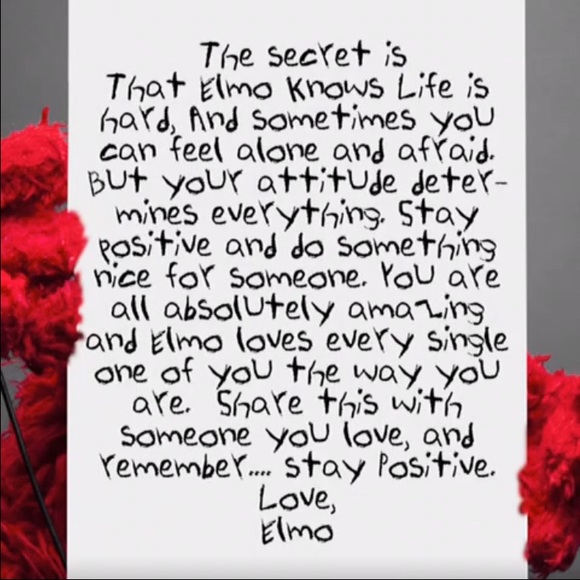 The secret is
That Elmo Knows Life is
hard, And sometimes you
can feel alone and afraid.
But your attitude deter-
mines everything. Stay
positive and do something
nice for someone. You are
all absolutely amazing
and Elmo loves every single
one of you the way you
are. Share this with
someone you love, and
remember.... stay Positive.
Love,
Elmo